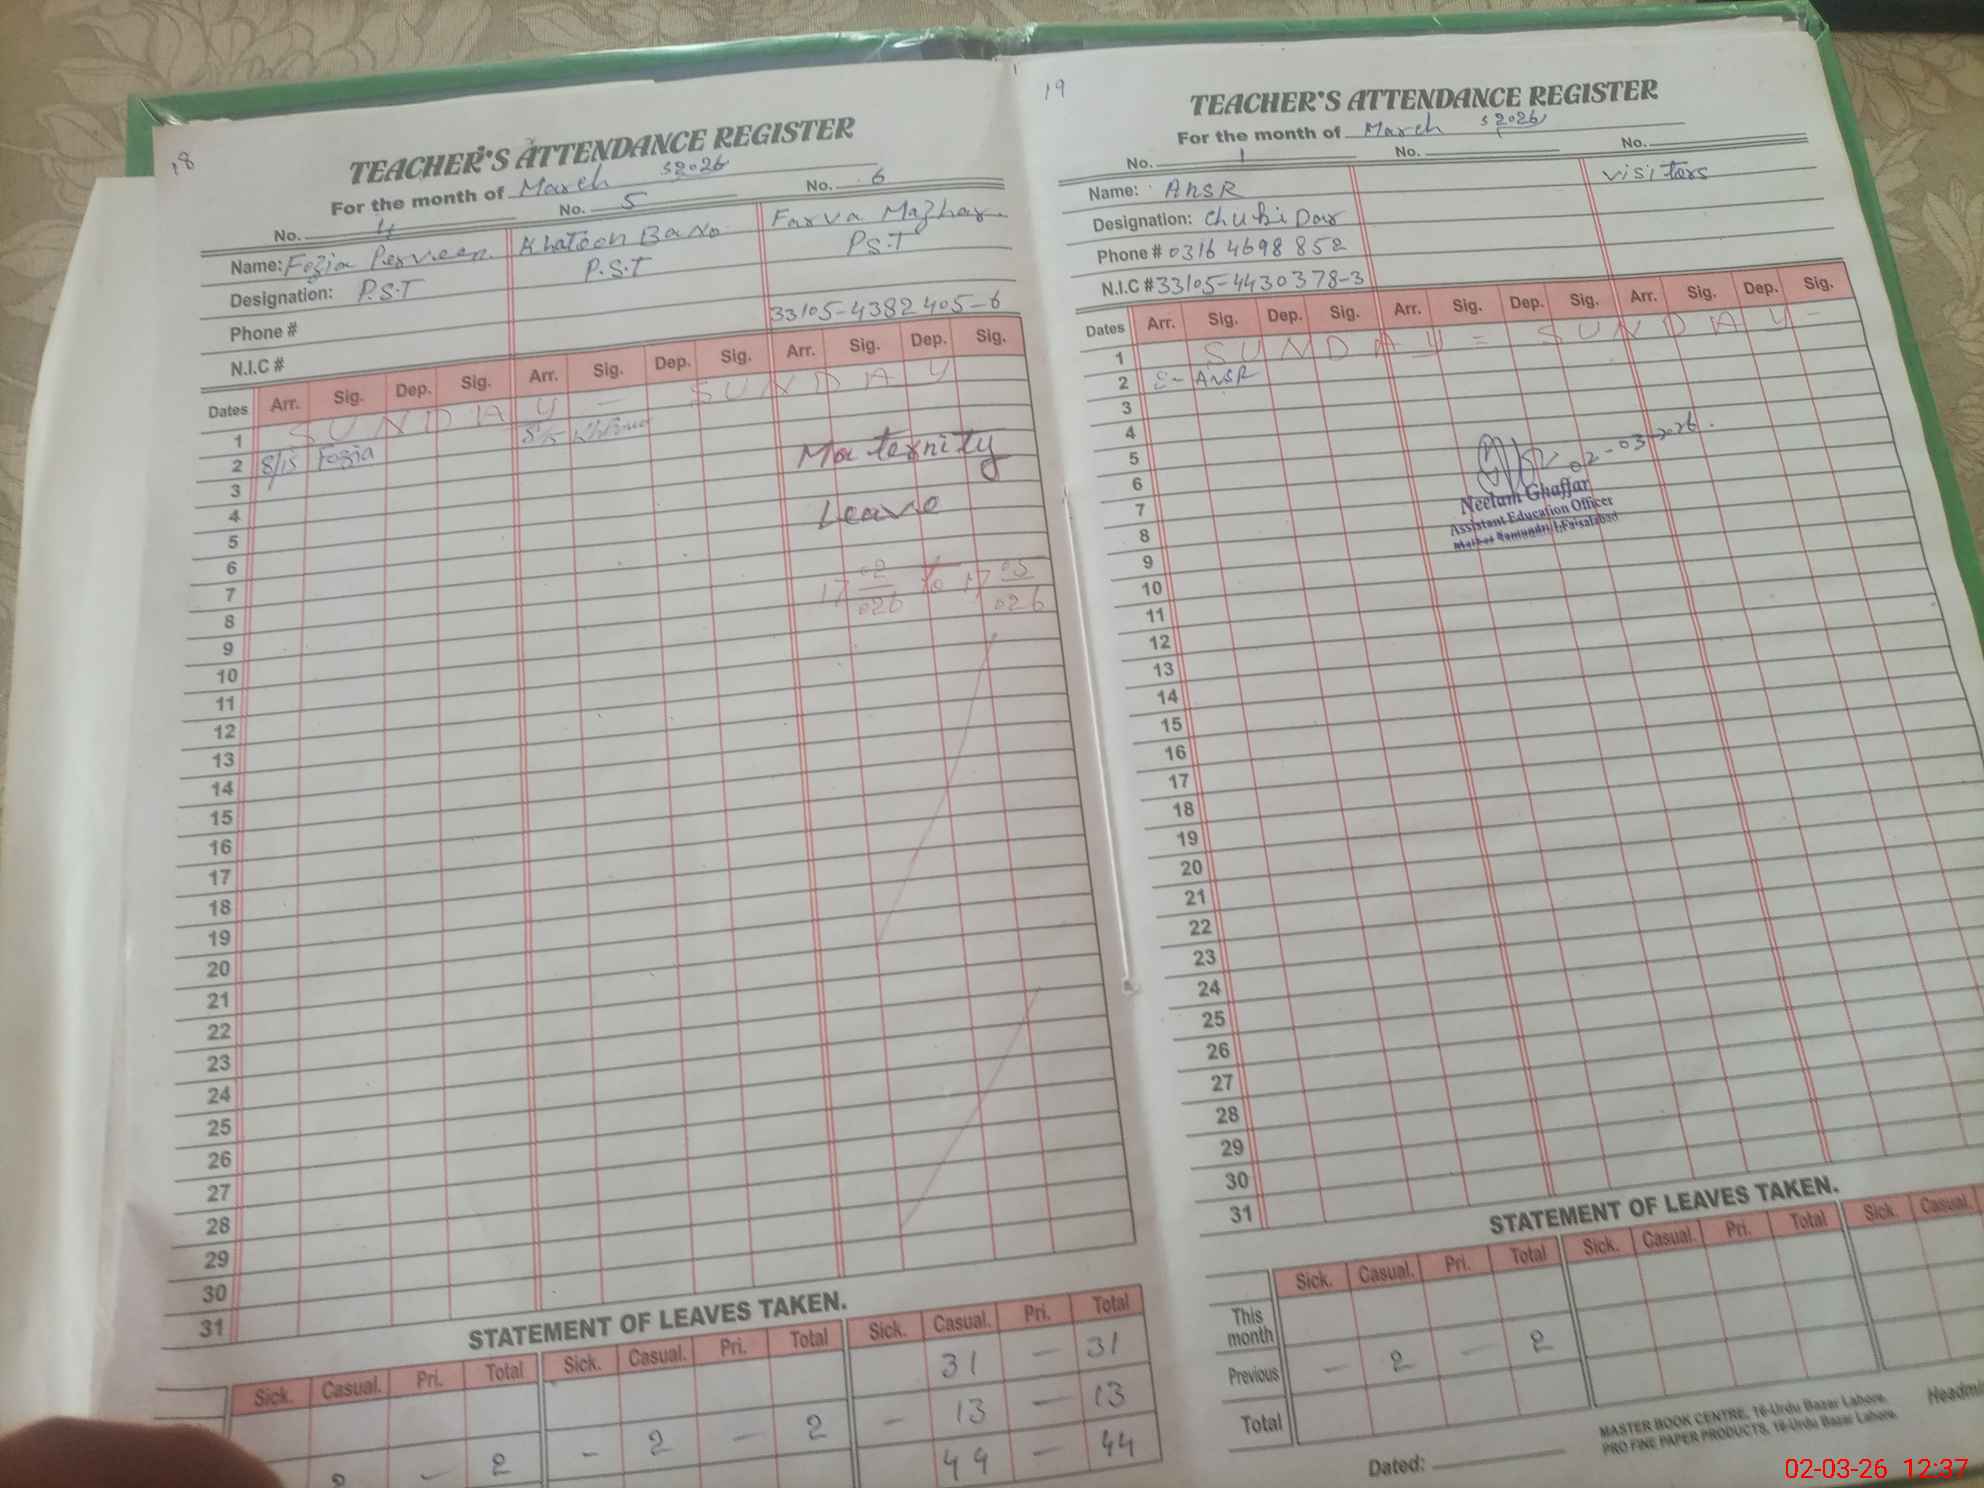 18
TEACHER'S ATTENDANCE REGISTER
For the month of March 2026
No. 4 No. 5 No. 6
Name: Fozia Perveen Khatoon Bano Farva Mazhar
Designation: P.S.T P.S.T P.S.T
Phone #
N.I.C # 33105-4382405-6
Dates Arr. Sig. Dep. Sig. Arr. Sig. Dep. Sig. Arr. Sig. Dep. Sig.
1 SUNDAY - SUNDAY
2 8/15 Fozia
3 Maternity
4
5 Leave
6
7
8 17 02 026 to 17 05 026
9
10
11
12
13
14
15
16
17
18
19
20
21
22
23
24
25
26
27
28
29
30
31
STATEMENT OF LEAVES TAKEN.
Sick. Casual. Pri. Total Sick. Casual. Pri. Total Sick. Casual. Pri. Total
31 - 31
2 - 2 - 2 - 2 - 13 - 13
44 - 44
19
TEACHER'S ATTENDANCE REGISTER
For the month of March 2026
No. 1 No. No.
Name: Ansr visitors
Designation: Chuki Dar
Phone # 0316 4698 852
N.I.C # 33105-4430378-3
Dates Arr. Sig. Dep. Sig. Arr. Sig. Dep. Sig. Arr. Sig. Dep. Sig.
1 SUNDAY = SUNDAY -
2 8- Ansr
3
4
5
6 02-03-2026.
7 Neelam Ghaffar
8 Assistant Education Officer
9
10
11
12
13
14
15
16
17
18
19
20
21
22
23
24
25
26
27
28
29
30
31
STATEMENT OF LEAVES TAKEN.
Sick. Casual. Pri. Total Sick. Casual. Pri. Total Sick. Casual.
This month
Previous - 2 - 2
Total
MASTER BOOK CENTRE, 16-Urdu Bazar Lahore.
PRO FINE PAPER PRODUCTS, 16-Urdu Bazar Lahore.
Dated:
02-03-26 12:37